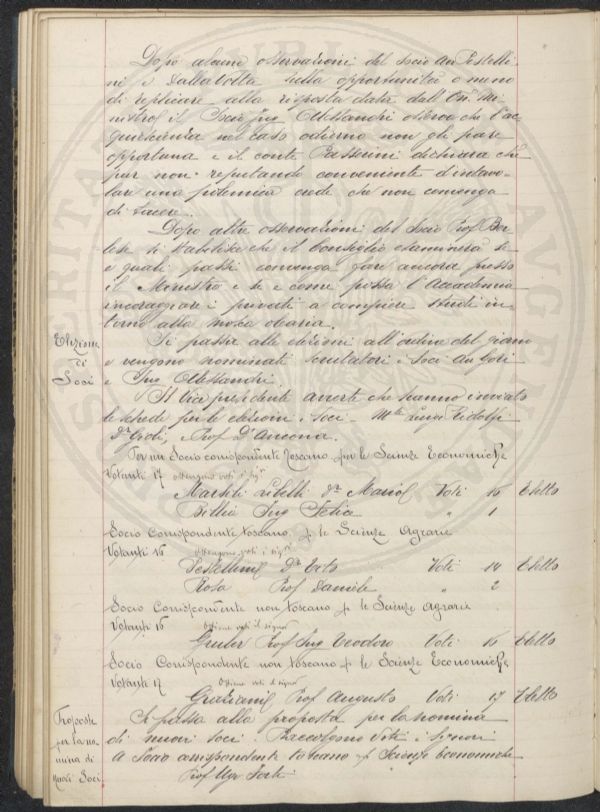 Dopo alcune osservazioni del socio Av. Pestelli-
ni e Dalla Volta sulla opportunità o meno
di replicare alla risposta data dall'On. Mi-
nistro, il Socio Ing. Alessandri osserva che l'ac-
quiescenza nel caso odierno non gli pare
opportuna e il conte Passerini dichiara che
pur non reputando conveniente d'intavo-
lare una polemica crede che non convenga
di tacere.
Dopo altre osservazioni del Socio Prof. Ber-
lese si stabilisce che il Consiglio esaminerà se
e quali passi convenga fare ancora presso
il Ministro e se e come possa l'Accademia
incoraggiare i privati a compiere studi in-
torno alla mosca olearia.
Elezione
di
Soci
Si passa alle elezioni all'ordine del giorno
e vengono nominati scrutatori i soci Av. Gori
e Ing. Alessandri.
Il Vice presidente avverte che hanno inviato
le schede per le elezioni i soci Mse Luigi Ridolfi
Dr. Gioli, Prof. D'Ancona.
Per un Socio corrispondente Toscano per le Scienze Economiche
Votanti 17 ottengono voti i sigri
Marsili Libelli Dr. Mario Voti 16 Eletto
Billia Ing. Felice " 1
Socio Corrispondente toscano p. le Scienze Agrarie
Votanti 16 ottengono voti i sigri
Pestellini Dr. Tito Voti 14 Eletto
Rosa Prof. Daniele " 2
Socio Corrispondente non toscano p. le Scienze Agrarie
Votanti 16 Ottiene voti il signor
Gruber Prof. Ing. Teodoro Voti 16 Eletto
Socio Corrispondente non toscano p. le Scienze Economiche
Votanti 17 Ottiene voti il signor
Graziani Prof. Augusto Voti 17 Eletto
Proposte
per la no-
mina di
nuovi Soci
Si passa alla proposta per la nomina
di nuovi soci. Raccolgono voti i signori
A Socio corrispondente toscano p. Scienze economiche
Prof. Ugo Forti